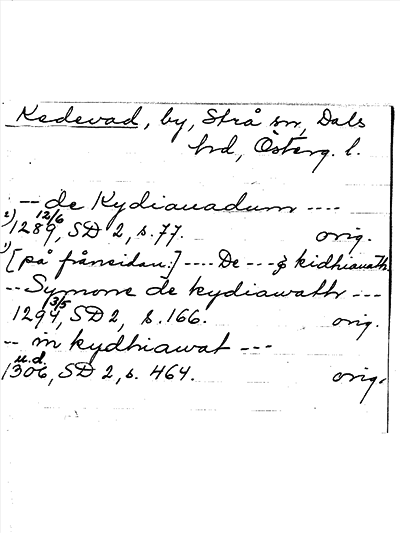 Kedevad, by, Strå sn, Dals
hd, Österg. l.
-- de Kydiauadum ----
2) 12/6
1289, SD 2, s. 77. orig.
1) [på frånsidan:] ---- De --- kidhiauath
-- Symone de kydiawathr ---
3/5
1294, SD 2, s. 166. orig.
-- in kydhiawat ---
u.d.
1306, SD 2, s. 464. orig.